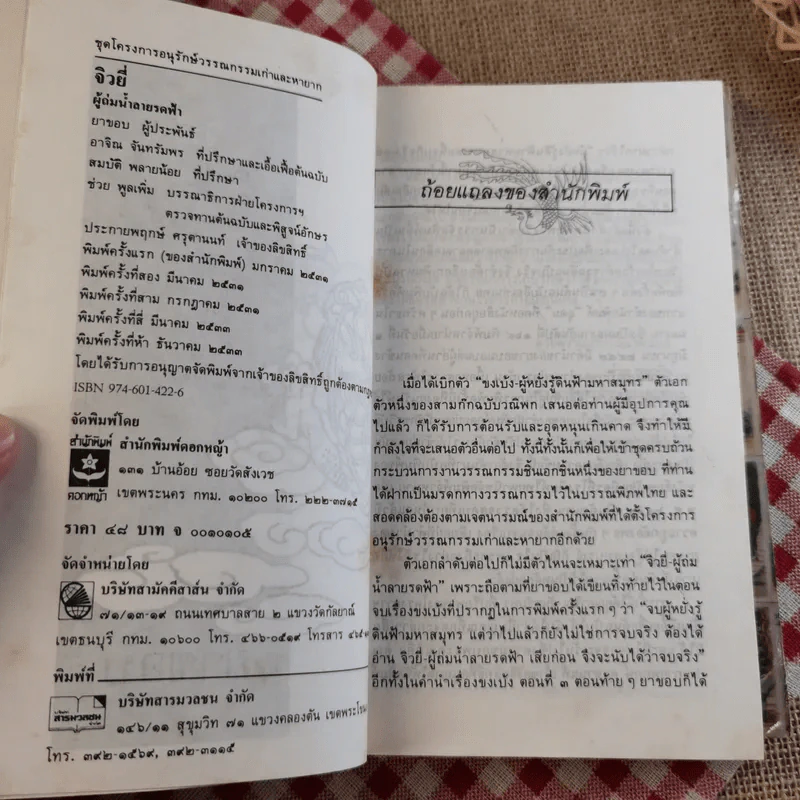 ชุดโครงการอนุรักษ์วรรณกรรมเก่าและหายาก
จิวยี่
ผู้ถ่มน้ำลายรดฟ้า
ยาขอบ ผู้ประพันธ์
อาจิณ จันทรัมพร ที่ปรึกษาและเอื้อเฟื้อต้นฉบับ
สมบัติ พลายน้อย ที่ปรึกษา
ช่วย พูลเพิ่ม บรรณาธิการฝ่ายโครงการฯ
ตรวจทานต้นฉบับและพิสูจน์อักษร
ประกายพฤกษ์ ศรุตานนท์ เจ้าของลิขสิทธิ์
พิมพ์ครั้งแรก (ของสำนักพิมพ์) มกราคม ๒๕๓๑
พิมพ์ครั้งที่สอง มีนาคม ๒๕๓๑
พิมพ์ครั้งที่สาม กรกฎาคม ๒๕๓๑
พิมพ์ครั้งที่สี่ มีนาคม ๒๕๓๓
พิมพ์ครั้งที่ห้า ธันวาคม ๒๕๓๓
โดยได้รับการอนุญาตจัดพิมพ์จากเจ้าของลิขสิทธิ์ถูกต้องตามกฎ
ISBN 974-601-422-6
จัดพิมพ์โดย
สำนักพิมพ์ สำนักพิมพ์ดอกหญ้า
๑๓๑ บ้านอ้อย ซอยวัดสังเวช
ดอกหญ้า เขตพระนคร กทม. ๑๐๒๐๐ โทร. ๒๒๒-๓๗๑๕
ราคา ๔๘ บาท จ ๐๐๑๐๑๐๕
จัดจำหน่ายโดย
บริษัทสามัคคีสาส์น จำกัด
๗๑/๑๓-๑๙ ถนนเทศบาลสาย ๒ แขวงวัดกัลยาณ์
เขตธนบุรี กทม. ๑๐๖๐๐ โทร. ๔๖๖-๐๕๑๙ โทรสาร
พิมพ์ที่
บริษัทสารมวลชน จำกัด
สารมวลชน
๑๔๖/๑๑ สุขุมวิท ๗๑ แขวงคลองตัน เขตพระโขนง
โทร. ๓๙๒-๑๕๖๙, ๓๙๒-๓๑๑๕
ถ้อยแถลงของสำนักพิมพ์
เมื่อได้เบิกตัว “ขงเบ้ง-ผู้หยั่งรู้ดินฟ้ามหาสมุทร” ตัวเอก
ตัวหนึ่งของสามก๊กฉบับวณิพก เสนอต่อท่านผู้มีอุปการคุณ
ไปแล้ว ก็ได้รับการต้อนรับและอุดหนุนเกินคาด จึงทำให้มี
กำลังใจที่จะเสนอตัวอื่นต่อไป ทั้งนี้ทั้งนั้นก็เพื่อให้เข้าชุดครบถ้วน
กระบวนการงานวรรณกรรมชิ้นเอกชิ้นหนึ่งของยาขอบ ที่ท่าน
ได้ฝากเป็นมรดกทางวรรณกรรมไว้ในบรรณพิภพไทย และ
สอดคล้องต้องตามเจตนารมณ์ของสำนักพิมพ์ที่ได้ตั้งโครงการ
อนุรักษ์วรรณกรรมเก่าและหายากอีกด้วย
ตัวเอกลำดับต่อไปก็ไม่มีตัวไหนจะเหมาะเท่า “จิวยี่-ผู้ถ่ม
น้ำลายรดฟ้า” เพราะถือตามที่ยาขอบได้เขียนทิ้งท้ายไว้ในตอน
จบเรื่องขงเบ้งที่ปรากฏในการพิมพ์ครั้งแรก ๆ ว่า “จบผู้หยั่งรู้
ดินฟ้ามหาสมุทร แต่ว่าไปแล้วก็ยังไม่ใช่การจบจริง ต้องได้
อ่าน จิวยี่-ผู้ถ่มน้ำลายรดฟ้า เสียก่อน จึงจะนับได้ว่าจบจริง”
อีกทั้งในคำนำเรื่องขงเบ้ง ตอนที่ ๓ ตอนท้าย ๆ ยาขอบก็ได้